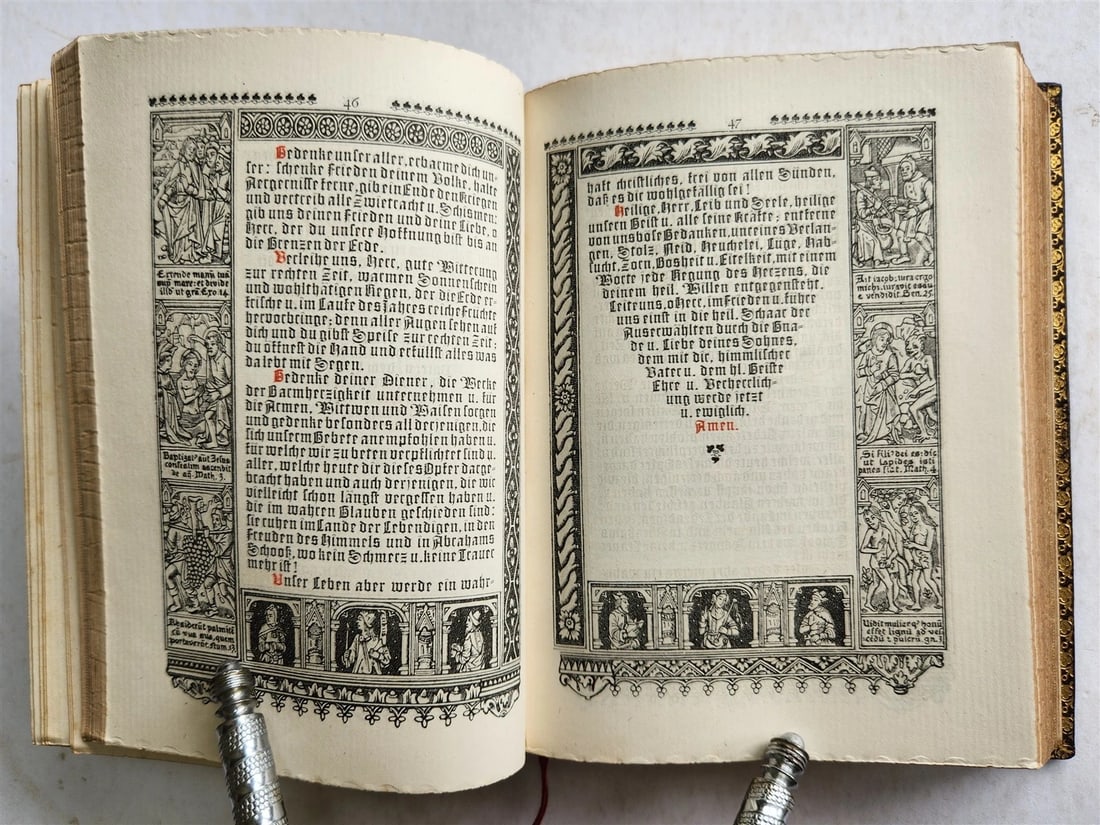 46
Gedenke unser aller, erbarme dich un-
ser: schenke Frieden deinem Volke, halte
Aergernisse ferne, gib ein Ende den Kriegen
und vertreib alle Zwietracht u. Schismen:
gib uns deinen Frieden und deine Liebe, o
Herr, der du unsere Hoffnung bist bis an
die Grenzen der Erde.
Verleihe uns, Herr, gute Witterung
zur rechten Zeit, warmen Sonnenschein
und wohlthätigen Regen, der die Erde er-
frische u. im Laufe des Jahres reiche Früchte
hervorbringe: denn aller Augen sehen auf
dich und du gibst Speise zur rechten Zeit:
du öffnest die Hand und erfüllst alles was
da lebt mit Segen.
Gedenke deiner Diener, die Werke
der Barmherzigkeit unternehmen u. für
die Armen, Wittwen und Waisen sorgen
und gedenke besonders all derjenigen, die
sich unserm Gebete anempfohlen haben u.
für welche wir zu beten verpflichtet sind u.
aller, welche heute dir dieses Opfer darge-
bracht haben und auch derjenigen, die wir
vielleicht schon längst vergessen haben u.
die im wahren Glauben geschieden sind:
sie ruhen im Lande der Lebendigen, in den
Freuden des Himmels und in Abrahams
Schooß, wo kein Schmerz u. keine Trauer
mehr ist!
Unser Leben aber werde ein wahr-
Extende manũ tuã
sup mare: et divide
illd ut Exo: 14.
Baptizat' aut Jesus
confestim ascendit
de aq̃. Math. 3.
Absciderũt palmitẽ
cũ vua sua, quem
portaverũt. Num. 13
47
haft christliches, frei von allen Sünden,
daß es dir wohlgefällig sei!
Heilige, Herr, Leib und Seele, heilige
unsern Geist u. alle seine Kräfte: entferne
von uns böse Gedanken, unreines Verlan-
gen, Stolz, Neid, Heuchelei, Lüge, Hab-
sucht, Zorn, Bosheit u. Eitelkeit, mit einem
Worte jede Regung des Herzens, die
deinem heil. Willen entgegensteht.
Leite uns, o Herr, im Frieden u. führe
uns einst in die heil. Schaar der
Auserwählten durch die Gna-
de u. Liebe deines Sohnes,
dem mit dir, himmlischer
Vater u. dem hl. Geiste
Ehre u. Verherrlich-
ung werde jetzt
u. ewiglich.
Amen.
Ait jacob: iura ergo
michi. iuravit esau
e vendidit. Gen. 25.
Si fili' dei es: dic
ut lapides isti
panes fiãt. Math. 4.
Vidit mulier q' bonũ
esset lignũ ad ves
cedũ z pulcrũ. gn. 3